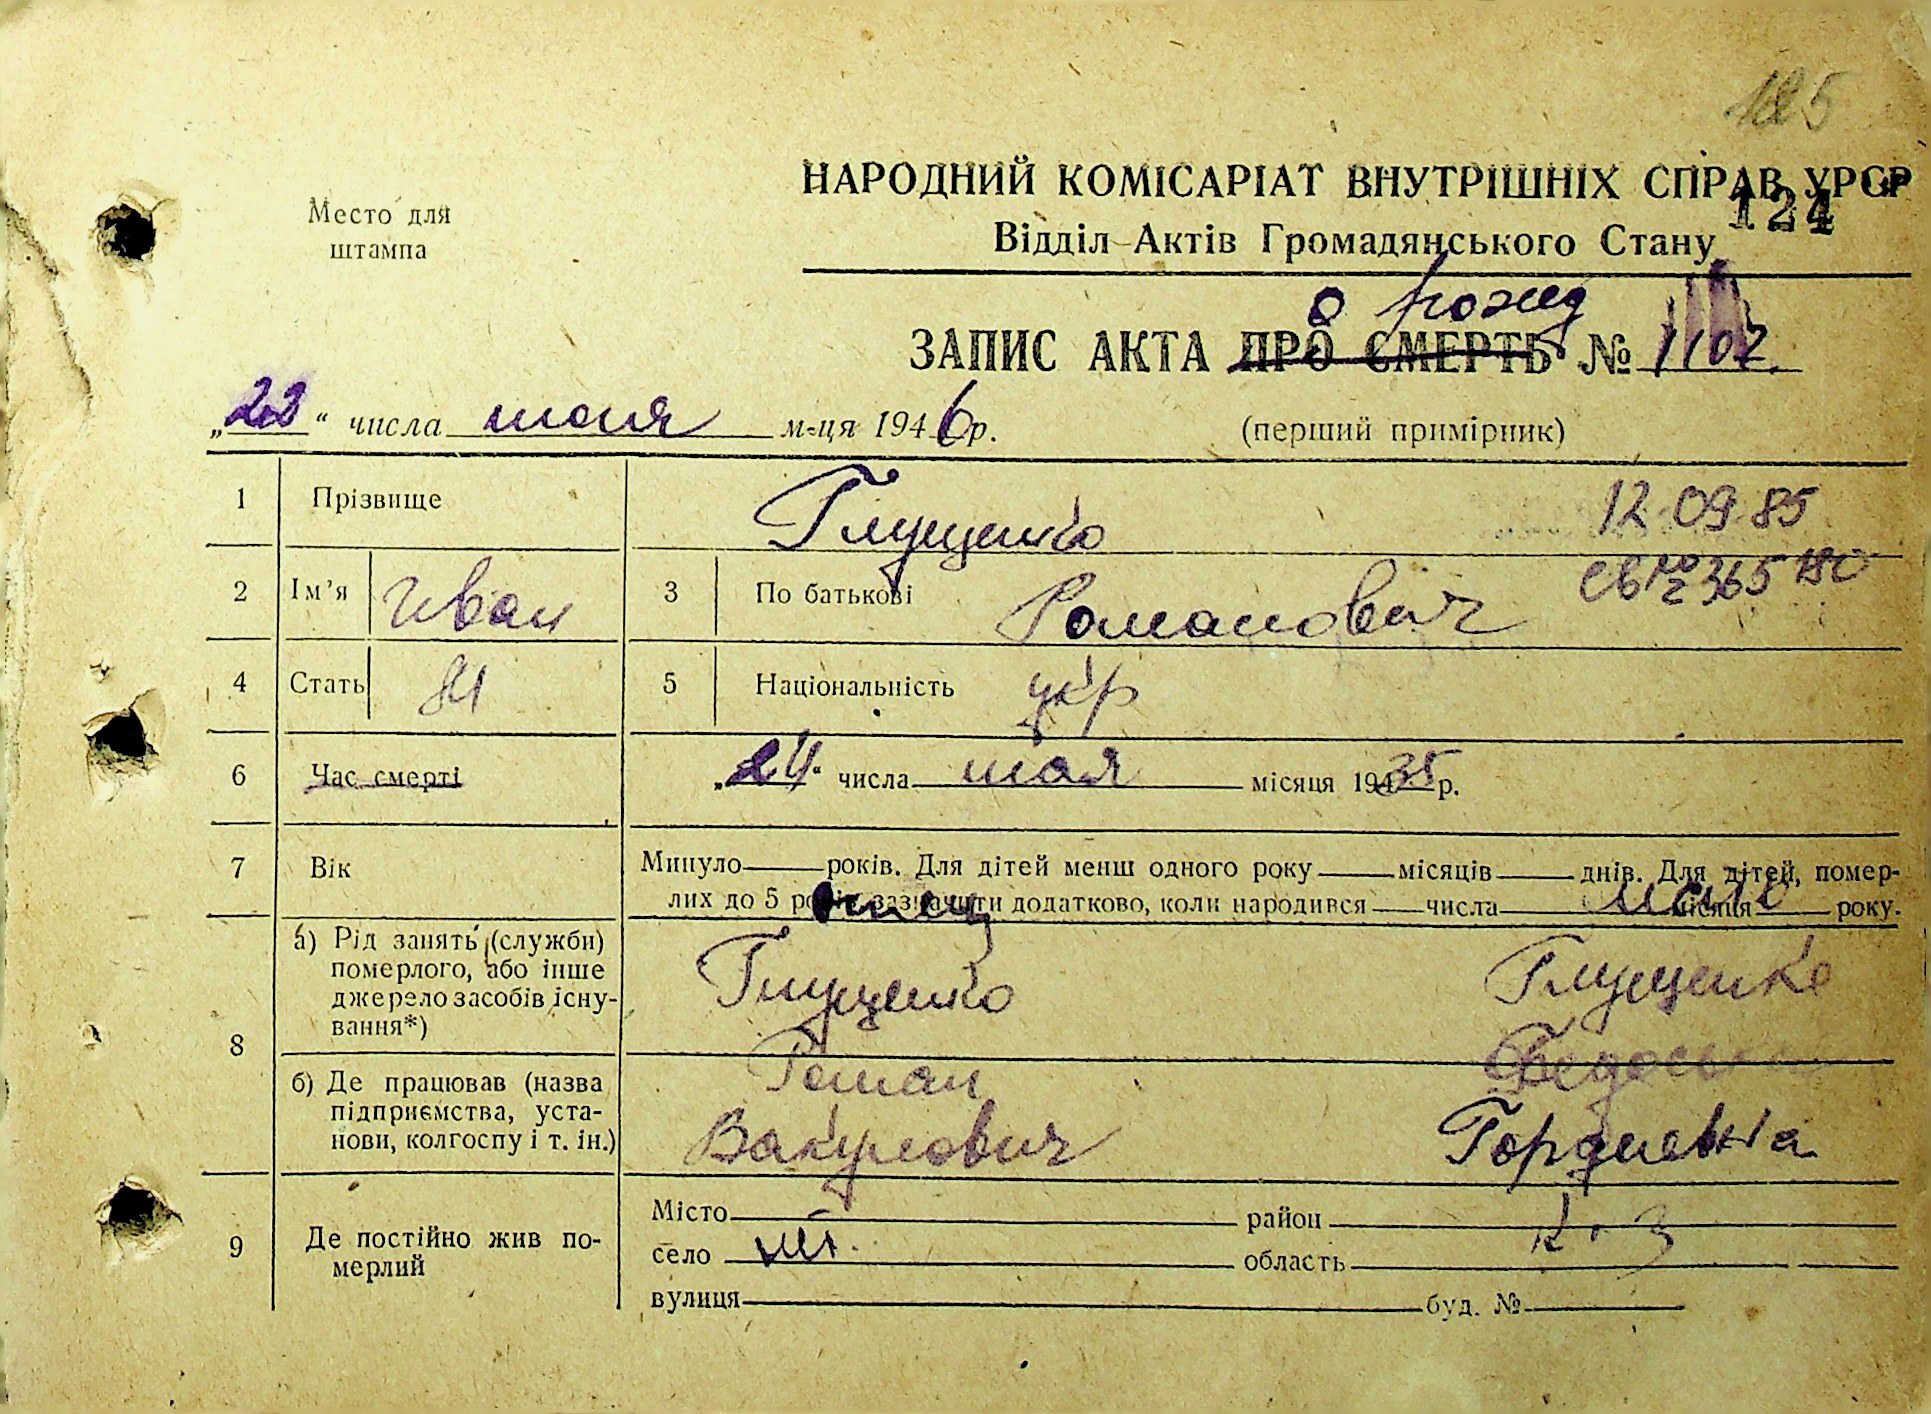 185
НАРОДНИЙ КОМІСАРІАТ ВНУТРІШНІХ СПРАВ УРСР
124
Место для
штампа
Відділ Актів Громадянського Стану
о рожд
ЗАПИС АКТА ПРО СМЕРТЬ № 1107
„22“ числа июня м-ця 1946 р. (перший примірник)
1 Прізвище Глущенко 12 09 85
2 Ім'я Иван 3 По батькові Романович св № 365190
4 Стать М 5 Національність укр
6 Час смерті „24“ числа мая місяця 1935 р.
7 Вік Минуло років. Для дітей менш одного року місяців днів. Для дітей, помер-
лих до 5 років зазначити додатково, коли народився числа місяця року.
отец мать
8 а) Рід занять (служби)
померлого, або інше
джерело засобів існу-
вання*)
Глущенко Глущенко
Роман
б) Де працював (назва
підприємства, уста-
нови, колгоспу і т. ін.)
Вакулович Гордиевна
9 Де постійно жив по-
мерлий
Місто район
село область
вулиця буд. №